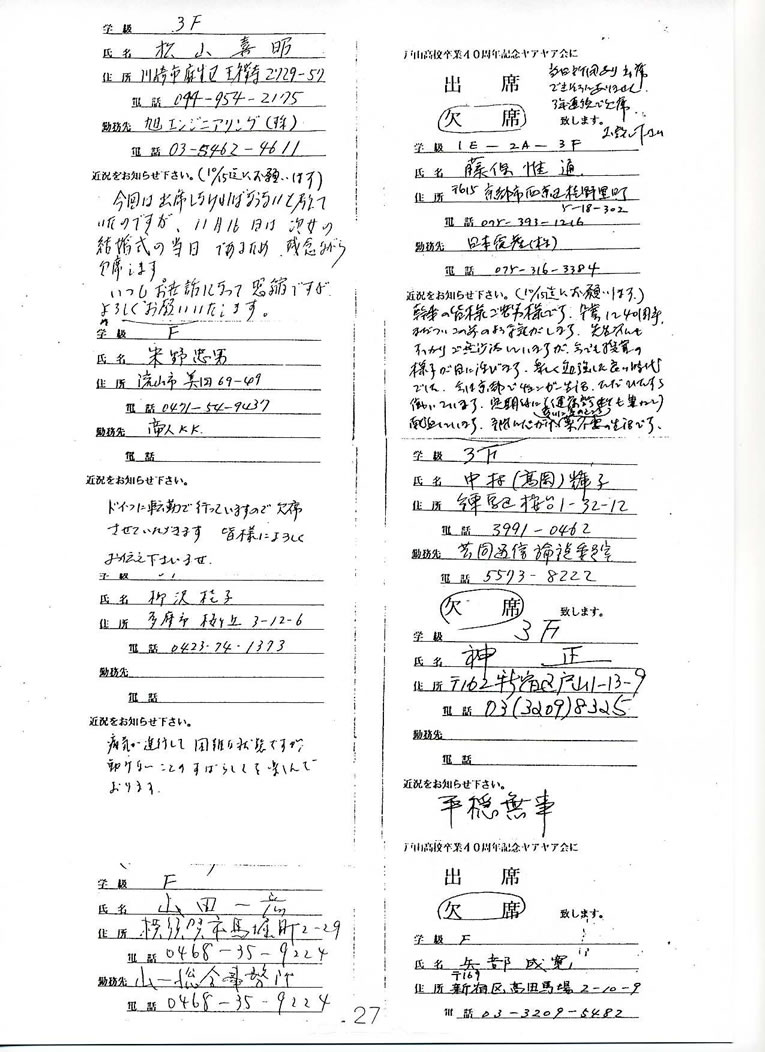 学級 3F
氏名 松山喜昭
住所 川崎市麻生区王禅寺2729-57
電話 044-954-2175
勤務先 旭エンジニアリング(株)
電話 03-5462-4611
近況をお知らせ下さい。(10/15迄にお願います)
今回は出席しなければならないと考えて
いたのですが、11月16日は次女の
結婚式の当日であるため、残念ながら
欠席します。
いつもお世話になって恐縮ですが
よろしくお願いいたします。
学級 F
氏名 米野忠男
住所 流山市美田69-49
電話 0471-54-9437
勤務先 帝人KK.
電話
近況をお知らせ下さい。
ドイツに転勤で行っていますので欠席
させていただきます 皆様によろしく
お伝え下さいませ.
学級
氏名 柳沢桂子
住所 多摩市桜ヶ丘3-12-6
電話 0423-74-1373
勤務先
電話
近況をお知らせ下さい。
病気が進行して困難な状態ですが
動けないことのすばらしさを楽しんで
おります.
学級 F
氏名 山田一
住所 横須賀市馬堀町2-29
電話 0468-35-9224
勤務先 山一総合事務所
電話 0468-35-9224
戸山高校卒業40周年記念ヤアヤア会に
出席
欠席 致します。
3年連続で欠席
学級 1E-2A-3F
氏名 藤保惟通
住所 〒615 京都市西京区樫野里町
5-18-302
電話 075-393-1216
勤務先 日本
電話 075-316-3384
近況をお知らせ下さい。(10/15迄にお願います.)
幹事の皆様ご苦労様です. 卒業して40周年
すっかりご無沙汰していますが、今でも教室の
様子が目に浮びます. 楽しく勉強した良い時代
でした.
働いています.
学級 3F
氏名 中村(高岡)輝子
住所 練馬区桜台1-32-12
電話 3991-0462
勤務先 共同通信論説委員室
電話 5573-8222
欠席 致します。
学級 3F
氏名 神 正
住所 〒162 新宿区戸山1-13-9
電話 03(3209)8325
勤務先
電話
近況をお知らせ下さい。
平穏無事
戸山高校卒業40周年記念ヤアヤア会に
出席
欠席 致します。
学級 F
氏名 兵部成寛
〒169
住所 新宿区高田馬場2-10-9
電話 03-3209-5482
27